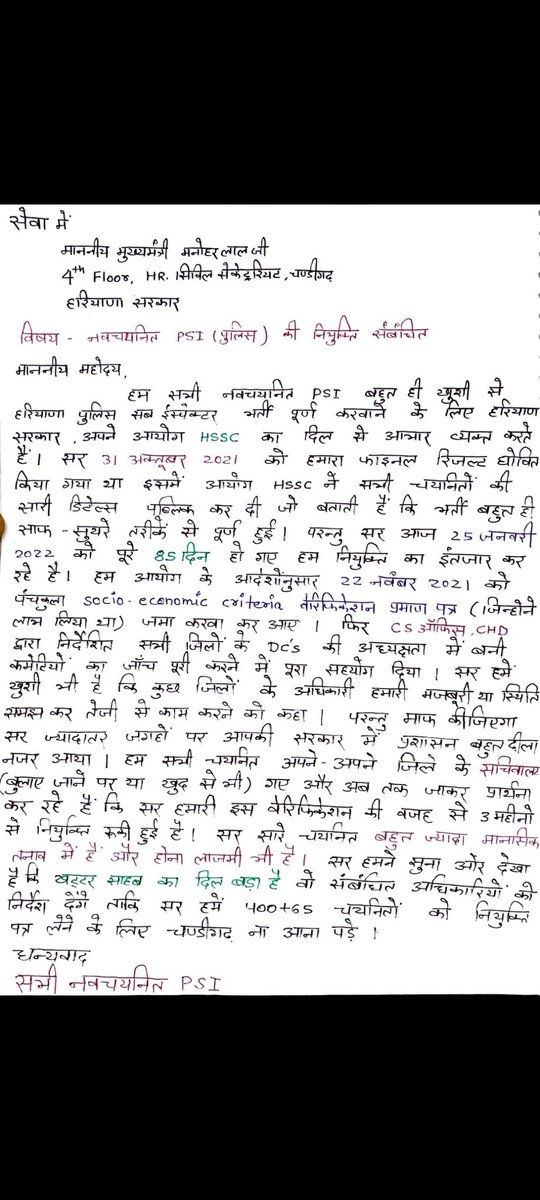 सेवा में
माननीय मुख्यमंत्री मनोहर लाल जी
4th Floor, HR. सिविल सैकेट्रियट, चण्डीगढ
हरियाणा सरकार
विषय - नवचयनित PSI (पुलिस) की नियुक्ति संबंधित
माननीय महोदय,
हम सभी नवचयनित PSI बहुत ही खुशी से
हरियाणा पुलिस सब इंस्पेक्टर भर्ती पूर्ण करवाने के लिए हरियाणा
सरकार, अपने आयोग HSSC का दिल से आभार व्यक्त करते
हैं। सर 31 अक्तूबर 2021 को हमारा फाइनल रिजल्ट घोषित
किया गया था इसमें आयोग HSSC ने सभी चयनितों की
सारी डिटेल्स पब्लिक कर दी जो बताती हैं कि भर्ती बहुत ही
साफ-सुथरे तरीके से पूर्ण हुई। परन्तु सर आज 25 जनवरी
2022 को पूरे 85 दिन हो गए हम नियुक्ति का इंतजार कर
रहे है। हम आयोग के आदेशोंनुसार 22 नवंबर 2021 को
पंचकुला socio-economic criteria वेरिफिकेशन प्रमाण पत्र (जिन्होने
लाभ लिया था) जमा करवा कर आए। फिर CS ऑफिस, CHD
द्वारा निर्देशित सभी जिलों के DC's की अध्यक्षता में बनी
कमेटियों का जाँच पूरी करने में पूरा सहयोग दिया। सर हमें
खुशी भी है कि कुछ जिलों के अधिकारी हमारी मजबूरी या स्थिति
समझ कर तेजी से काम करने को कहा। परन्तु माफ कीजिएगा
सर ज्यादातर जगहों पर आपकी सरकार में प्रशासन बहुत ढीला
नजर आया। हम सभी चयनित अपने-अपने जिले के सचिवालय
(बुलाए जाने पर या खुद से भी) गए और अब तक जाकर प्रार्थना
कर रहे हैं कि सर हमारी इस वेरिफिकेशन की वजह से 3 महीनो
से नियुक्ति रूकी हुई है। सर सारे चयनित बहुत ज्यादा मानसिक
तनाव में हैं और होना लाजमी भी है। सर हमने सुना ओर देखा
है कि खट्टर साहब का दिल बड़ा है वो संबंधित अधिकारियों को
निर्देश देंगे ताकि सर हमें 400+65 चयनितों को नियुक्ति
पत्र लेने के लिए चण्डीगढ़ ना आना पड़े।
धन्यवाद
सभी नवचयनित PSI